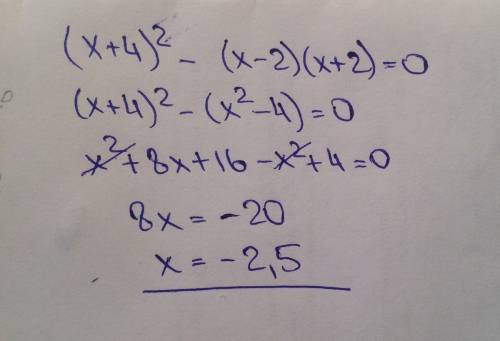 (x+4)² - (x-2)(x+2)=0
(x+4)² - (x²-4)=0
x²+8x+16-x²+4=0
8x = -20
x = -2,5